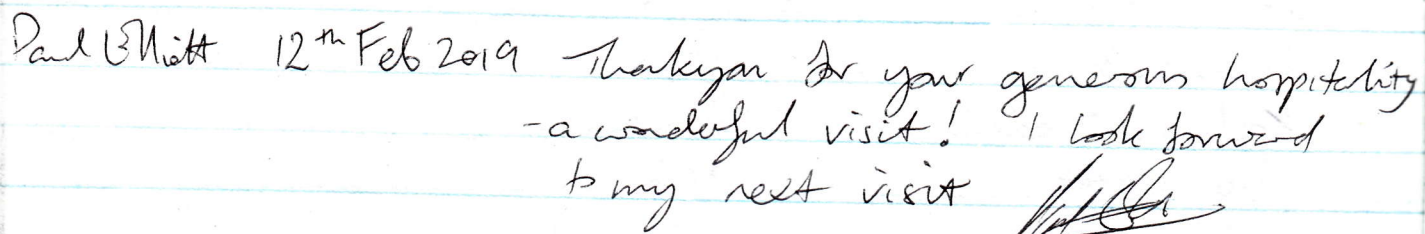 Paul Elliott 12th Feb 2019 Thankyou for your generous hospitality
- a wonderful visit! I look forward
to my next visit